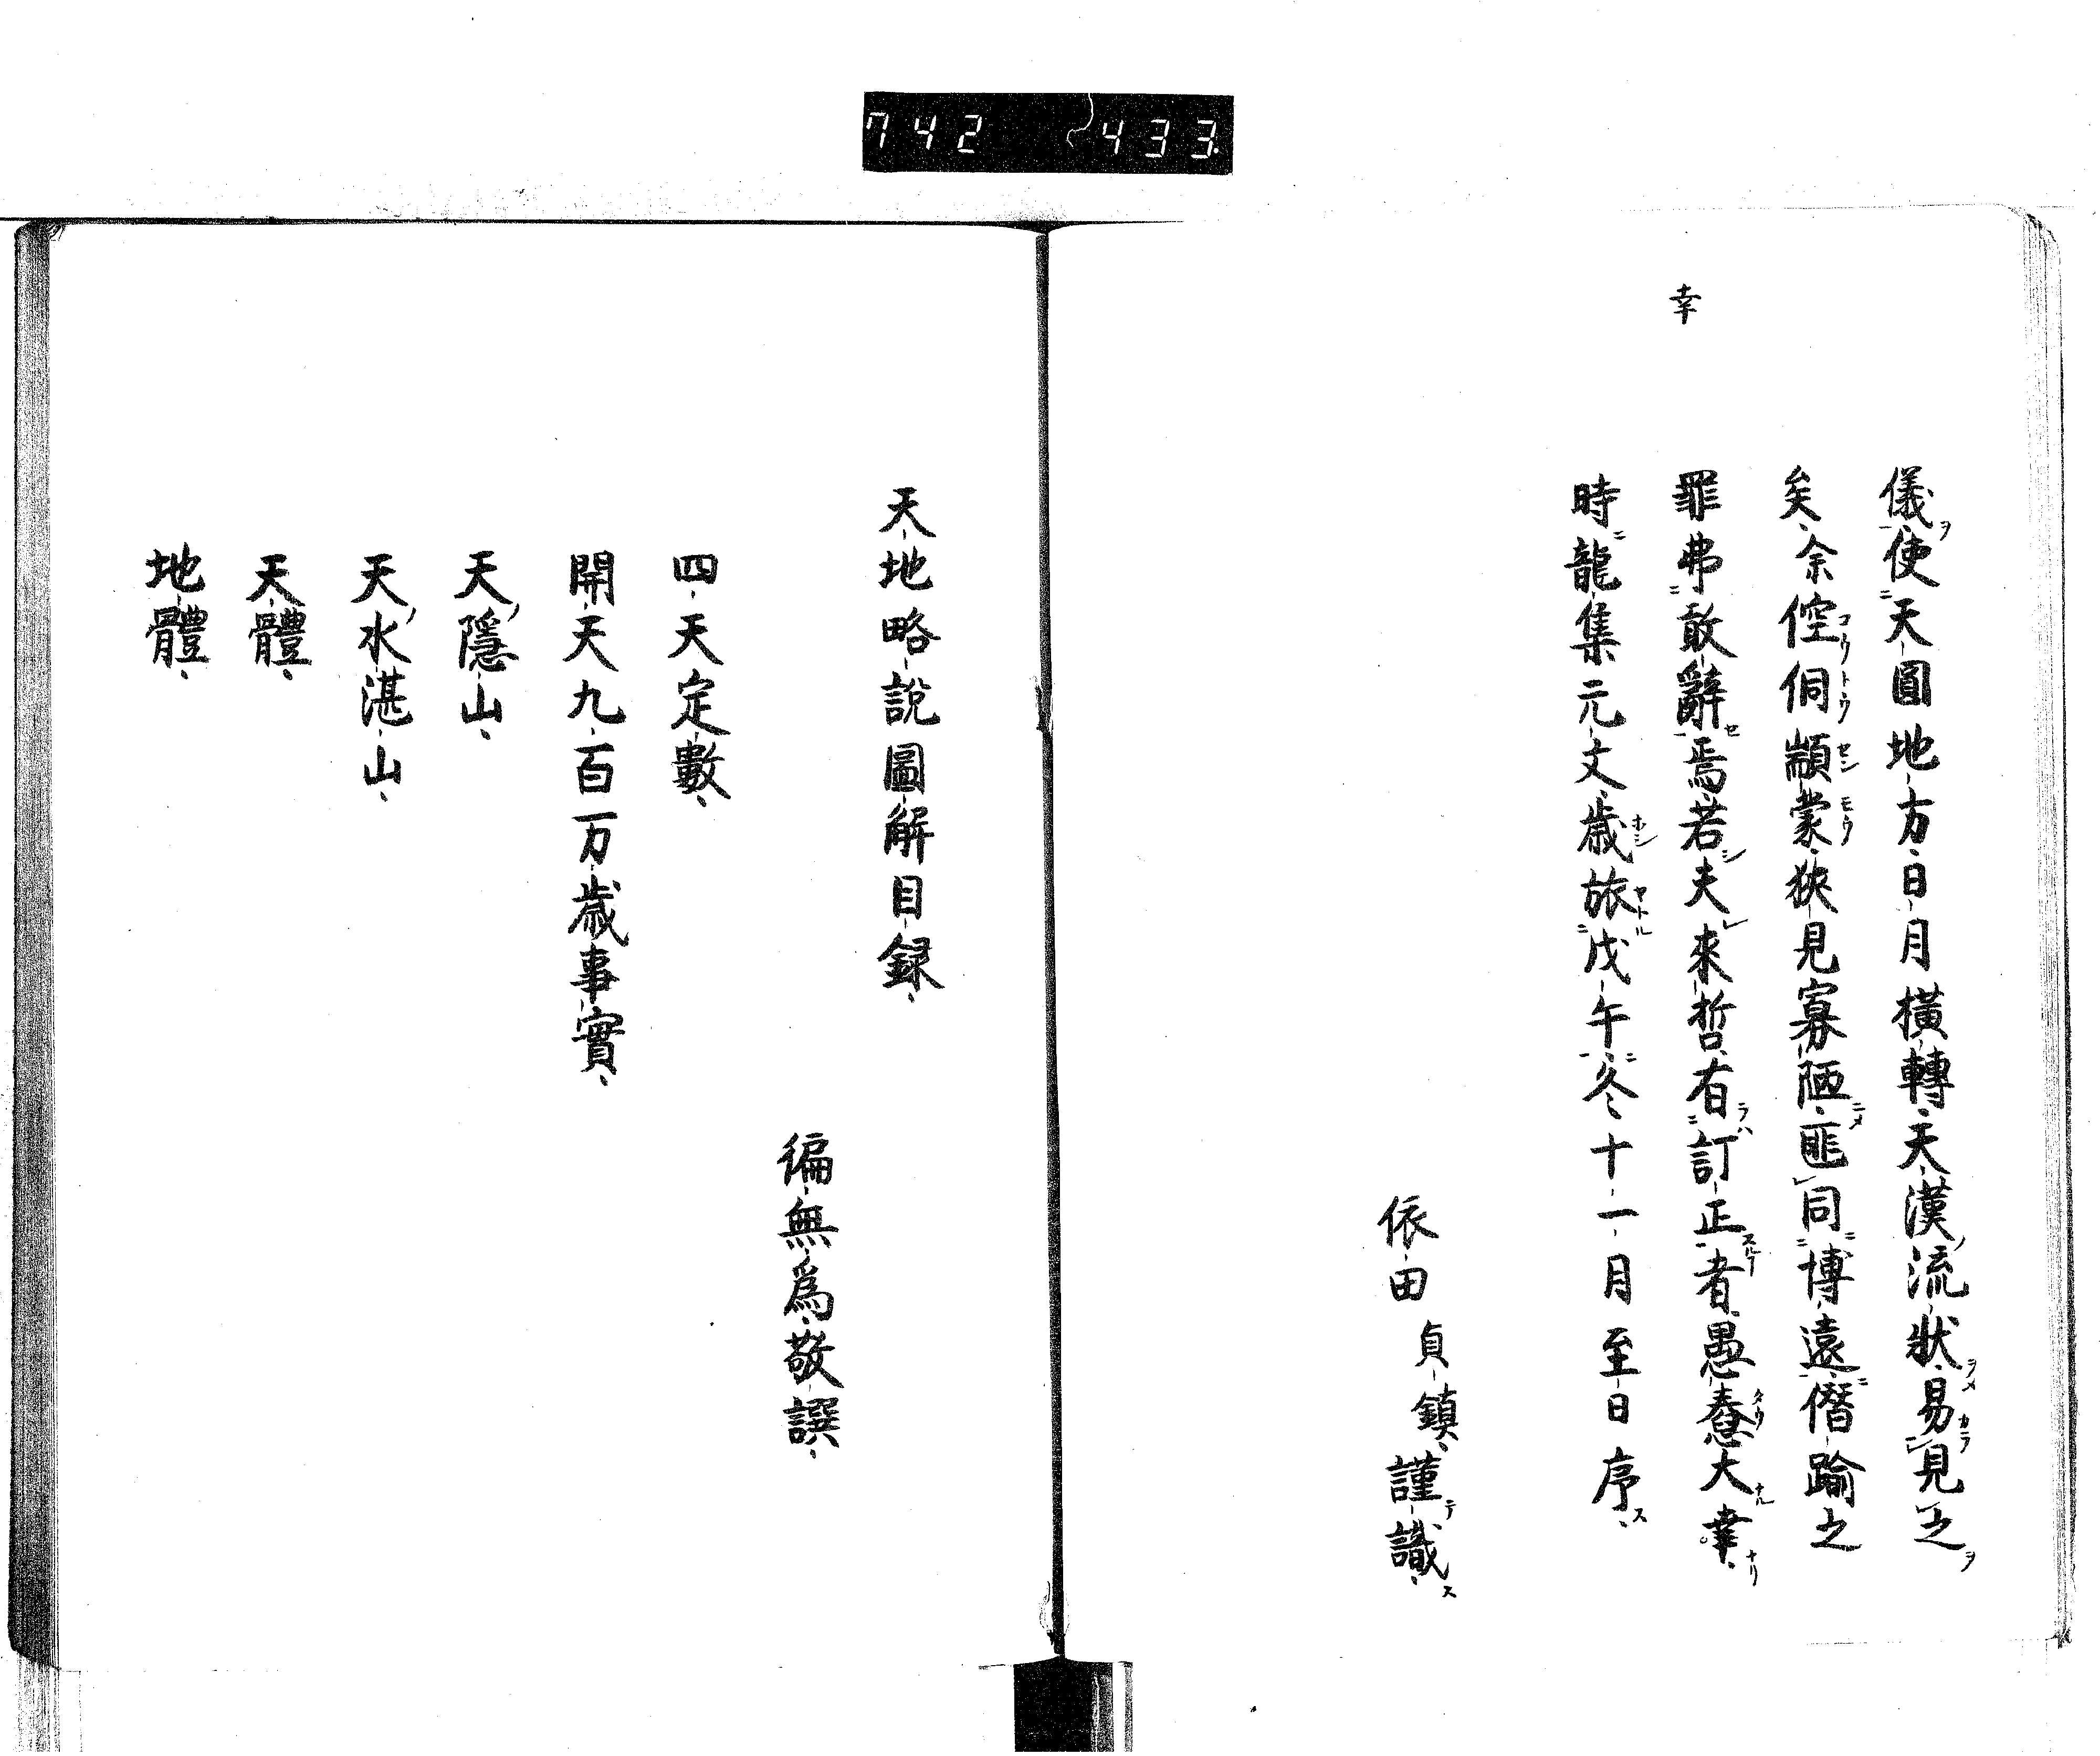 742 433
幸
儀使天圓地方日月橫轉天漢流狀易見之
矣余倥侗顓蒙狹見寡陋匪同博遠僭踰之
罪弗敢辭焉若夫來哲有訂正者愚惷大幸
時龍集元文歲旅戊午冬十一月至日序
依田貞鎮謹識
天地略說圖解目録
徧無爲敬譔
四天定數
開天九百万歲事實
天ノ隱山
天ノ水湛山
天體
地體